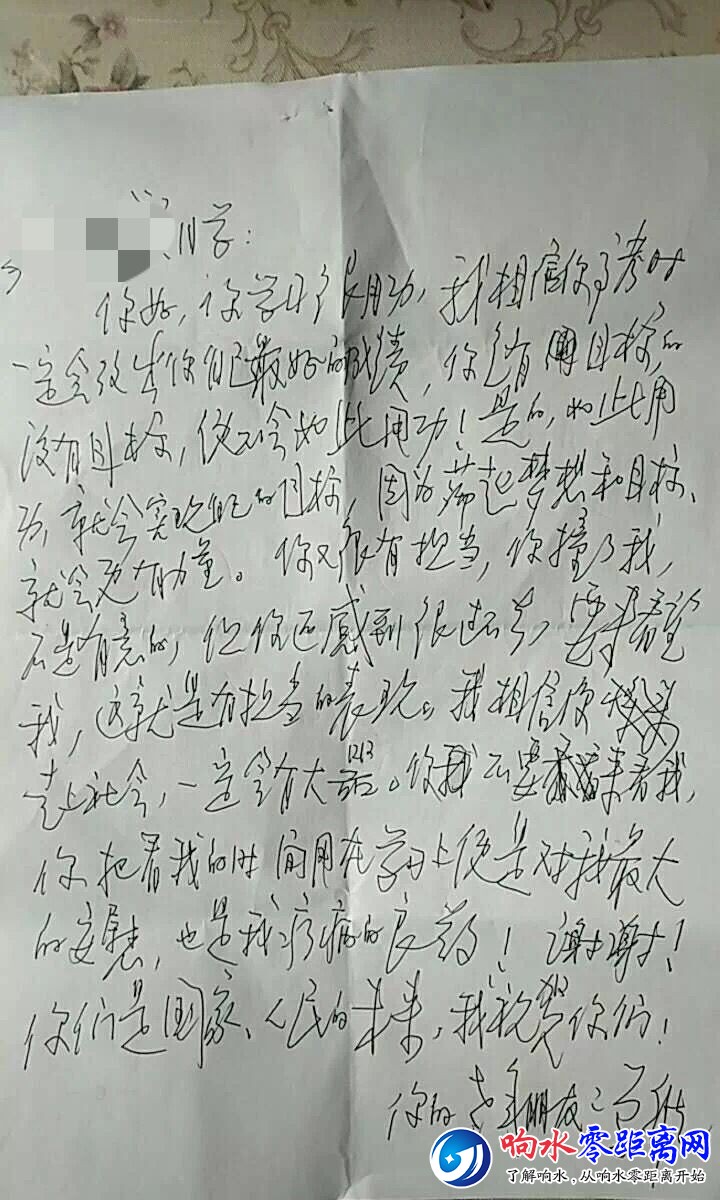 同学：
你好，你学习很用功，我相信你高考时
一定会考出你自己最好的成绩，你是有目标的，
没有目标，你不会如此用功！是的，如此用
功，就会实现自己的目标，因为有起梦想和目标、
就会更有力量。你又很有担当，你撞了我，
不是有意的，但你还感到很过意，要来看望
我，这就是有担当的表现。我相信你
走上社会，一定会有大器。你不要来看我，
你把看我的时间用在学习上便是对我最大
的安慰，也是我疗病的良药！谢谢！
你们是国家、人民的未来，我祝贺你们！
你的老年朋友：
响水零距离网
了解响水，从响水零距离开始